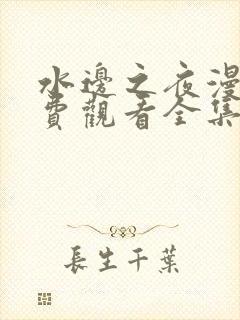 水邊之夜漫
費觀看全集
長生千葉